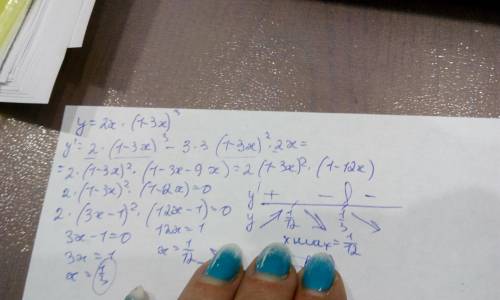 y = 2x · (1-3x)³
y' = 2 · (1-3x)³ - 3·3 (1-3x)² · 2x =
= 2 · (1-3x)² · (1-3x-9x) = 2(1-3x)² · (1-12x)
2 · (1-3x)² · (1-12x) = 0
2 · (3x-1)² · (12x-1) = 0
3x-1=0 12x=1
3x=1 x = 1/12
x = 1/3
y' + - -
y 1/12 1/3
x max = 1/12